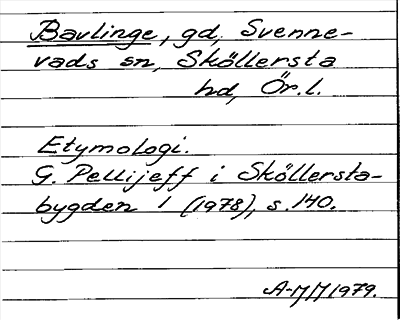 Bavlinge, gd, Svenne-
vads sn, Sköllersta
hd, Ör.l.
Etymologi.
G. Pellijeff i Sköllersta-
bygden 1 (1978), s. 140.
A-M M 1979.